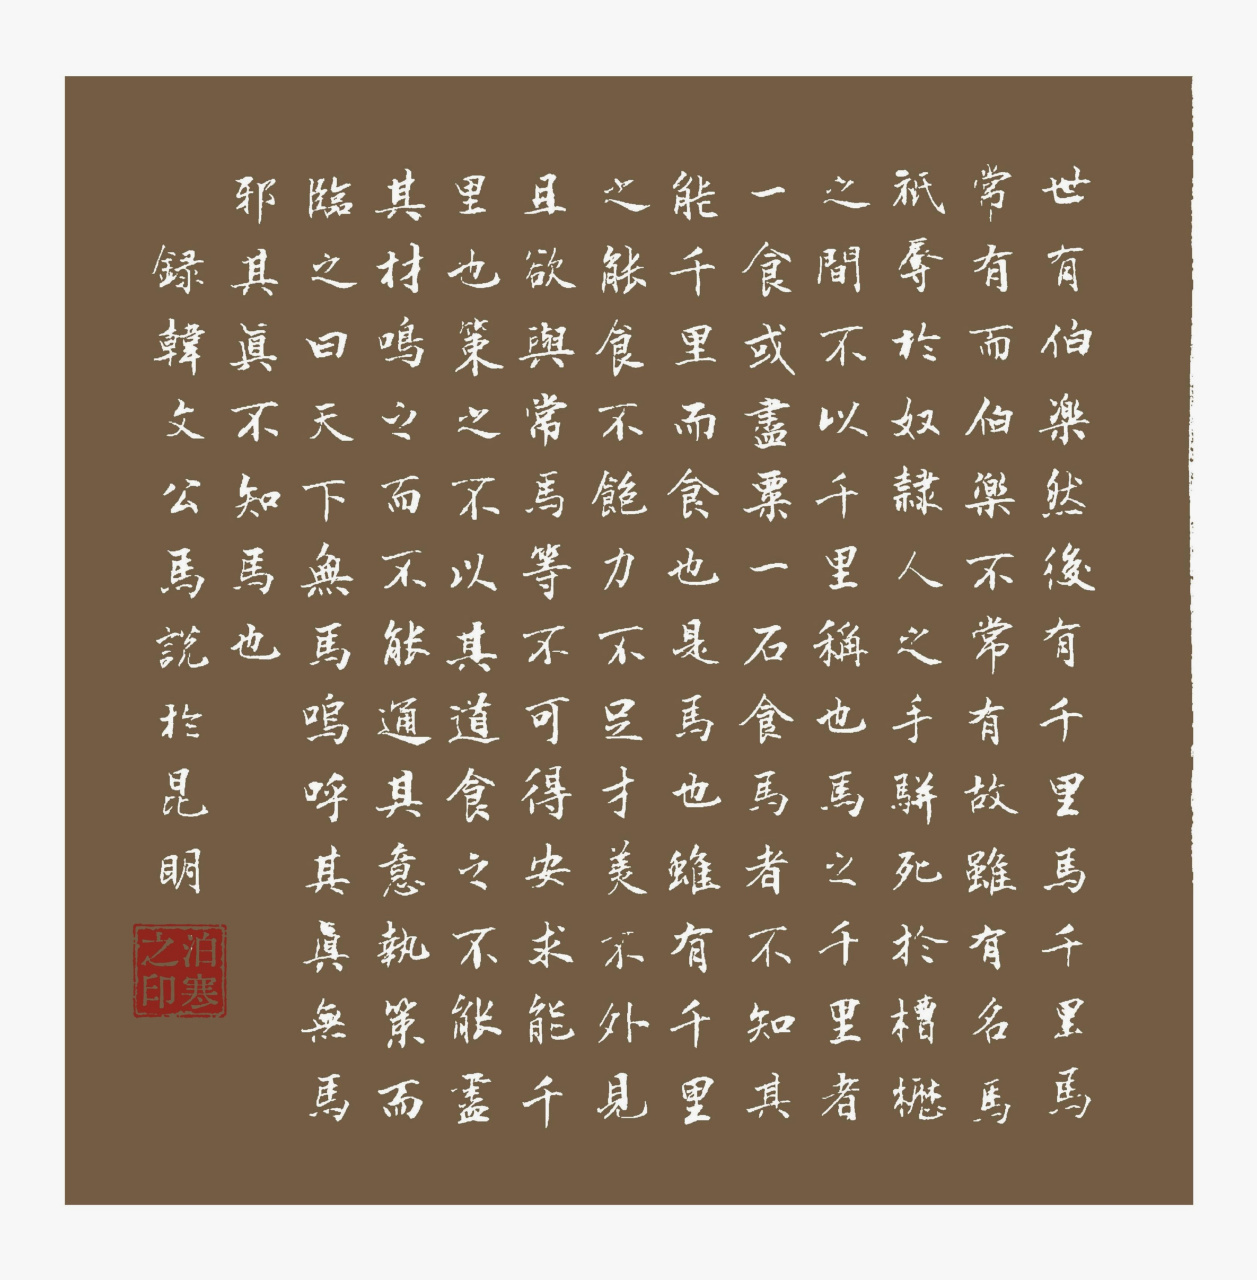 世有伯楽然後有千里馬千里馬
常有而伯樂不常有故雖有名馬
祇辱於奴隷人之手駢死於槽櫪
之間不以千里稱也馬之千里者
一食或盡粟一石食馬者不知其
能千里而食也是馬也雖有千里
之能食不飽力不足才美不外見
且欲與常馬等不可得安求能千
里也策之不以其道食之不能盡
其材鳴之而不能通其意執策而
臨之曰天下無馬嗚呼其眞無馬
邪其眞不知馬也
録韓文公馬説於昆明
泊寒之印